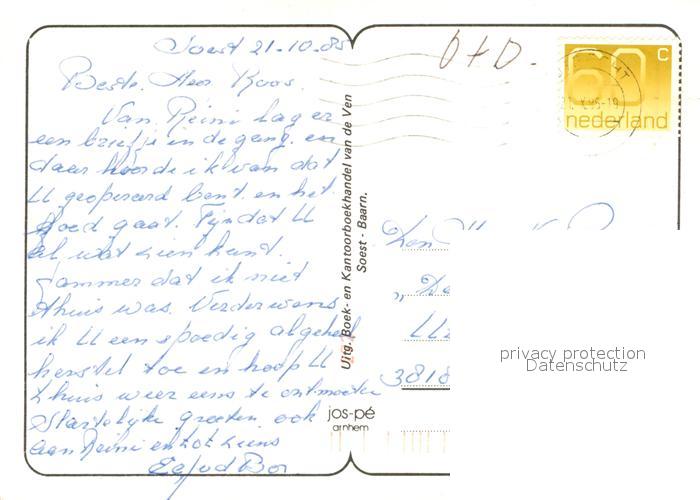 Soest 21-10-85
Beste Heer Koos.
Van Reini lag er
een briefje in de gang. en
daar hoorde ik van dat
U geopereerd bent. en het
goed gaat. Fijn dat U
al wat zien kunt.
Jammer dat ik niet
thuis was. Verder wens
ik U een spoedig algeheel
herstel toe en hoop U
thuis weer eens te ontmoeten
Hartelijke groeten ook
aan Reini en tot ziens
Uitg. Boek- en Kantoorboekhandel van de Ven
Soest - Baarn.
jos-pé
arnhem
60 C
nederland
Den
3818
privacy protection
Datenschutz